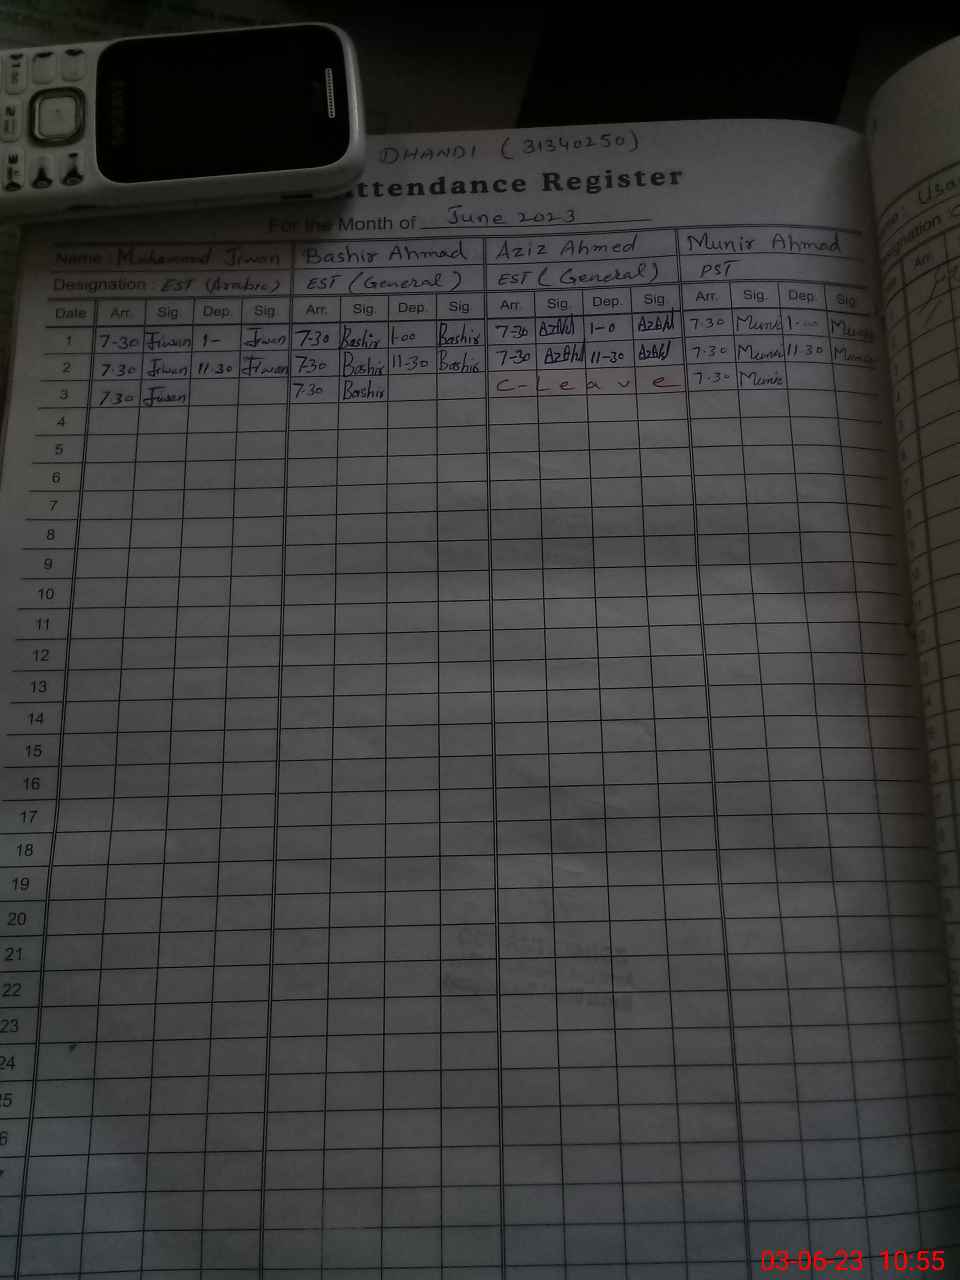 DHANDI (31340250)
ttendance Register
For the Month of June 2023
Name : Muhammad Irwan Bashir Ahmad Aziz Ahmed Munir Ahmad
Designation : EST (Arabic) EST (General) EST (General) PST
Date Arr. Sig. Dep. Sig. Arr. Sig. Dep. Sig. Arr. Sig. Dep. Sig. Arr. Sig. Dep. Sig.
1 7-30 Irwan 1- Irwan 7-30 Bashir 1-00 Bashir 7-30 1-0 7-30 Munir 1-00 Munir
2 7-30 Irwan 11.30 Irwan 7-30 Bashir 11-30 Bashir 7-30 11-30 7-30 Munir 11.30 Munir
3 7-30 Irwan 7-30 Bashir C-Leave 7-30 Munir
4
5
6
7
8
9
10
11
12
13
14
15
16
17
18
19
20
21
22
23
24
5
6
03-06-23 10:55